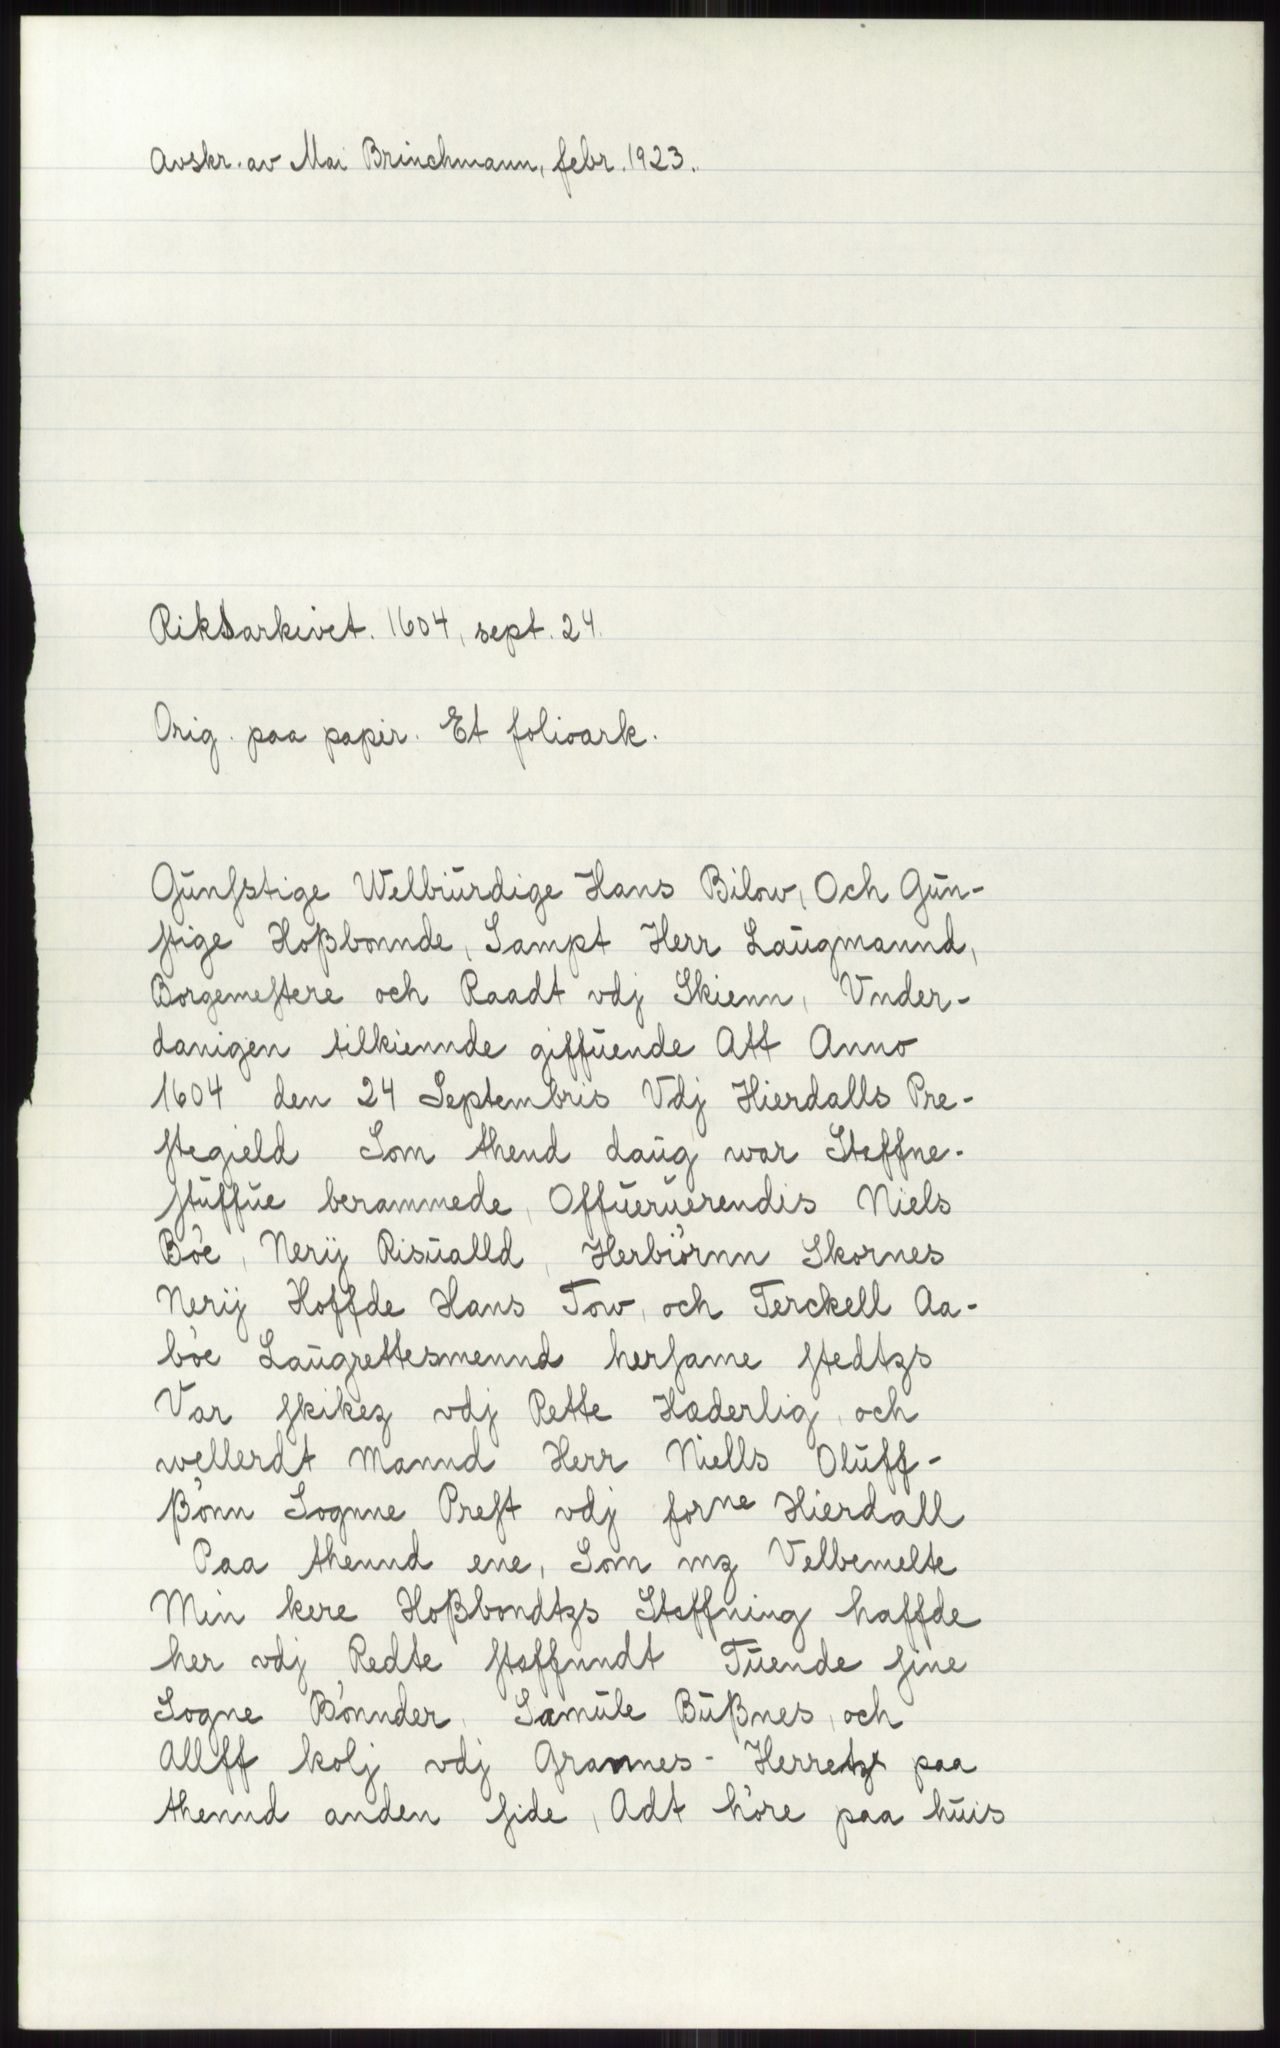 Avskr. av Mai Brinchmann, febr. 1923.
Riksarkivet. 1604, sept. 24.
Orig. paa papir. Et folioark.
Gŭnstige Welbiŭrdige Hans Bilow, Och Gŭn-
stige Hoßbonnde, Sampt Herr Laŭgmannd,
Borgemestere och Raadt vdj Skienn, Vnder-
danigen tilkiennde giffŭende Att Anno
1604 den 24 Septembris Vdj Hierdalls Pre-
stegield Som thend daŭg war Steffne-
stŭffŭe berammede, Offŭerŭerendis Niels
Bóe, Nerij Risŭalld, Herbiórnn Skornes
Nerij Hoffde Hans Tow, och Terckell Aa-
bóe Laŭgrettesmennd hersame stedtzs
Var skikez vdj Rette Hæderlig, och
wellerdt Mannd Herr Niells Olŭff-
ßónn Sognne Prest vdj forne Hierdall
Paa thennd ene, Som mz Velbemelte
Min kere Hoßbondtzs Steffning haffde
her vdj Redte steffnndt Tŭende sine
Sogne Bónnder, Samŭle Bŭßnes, och
Allff kolj vdj Grannes-Herretz paa
thennd anden side, Adt hóre paa hŭis